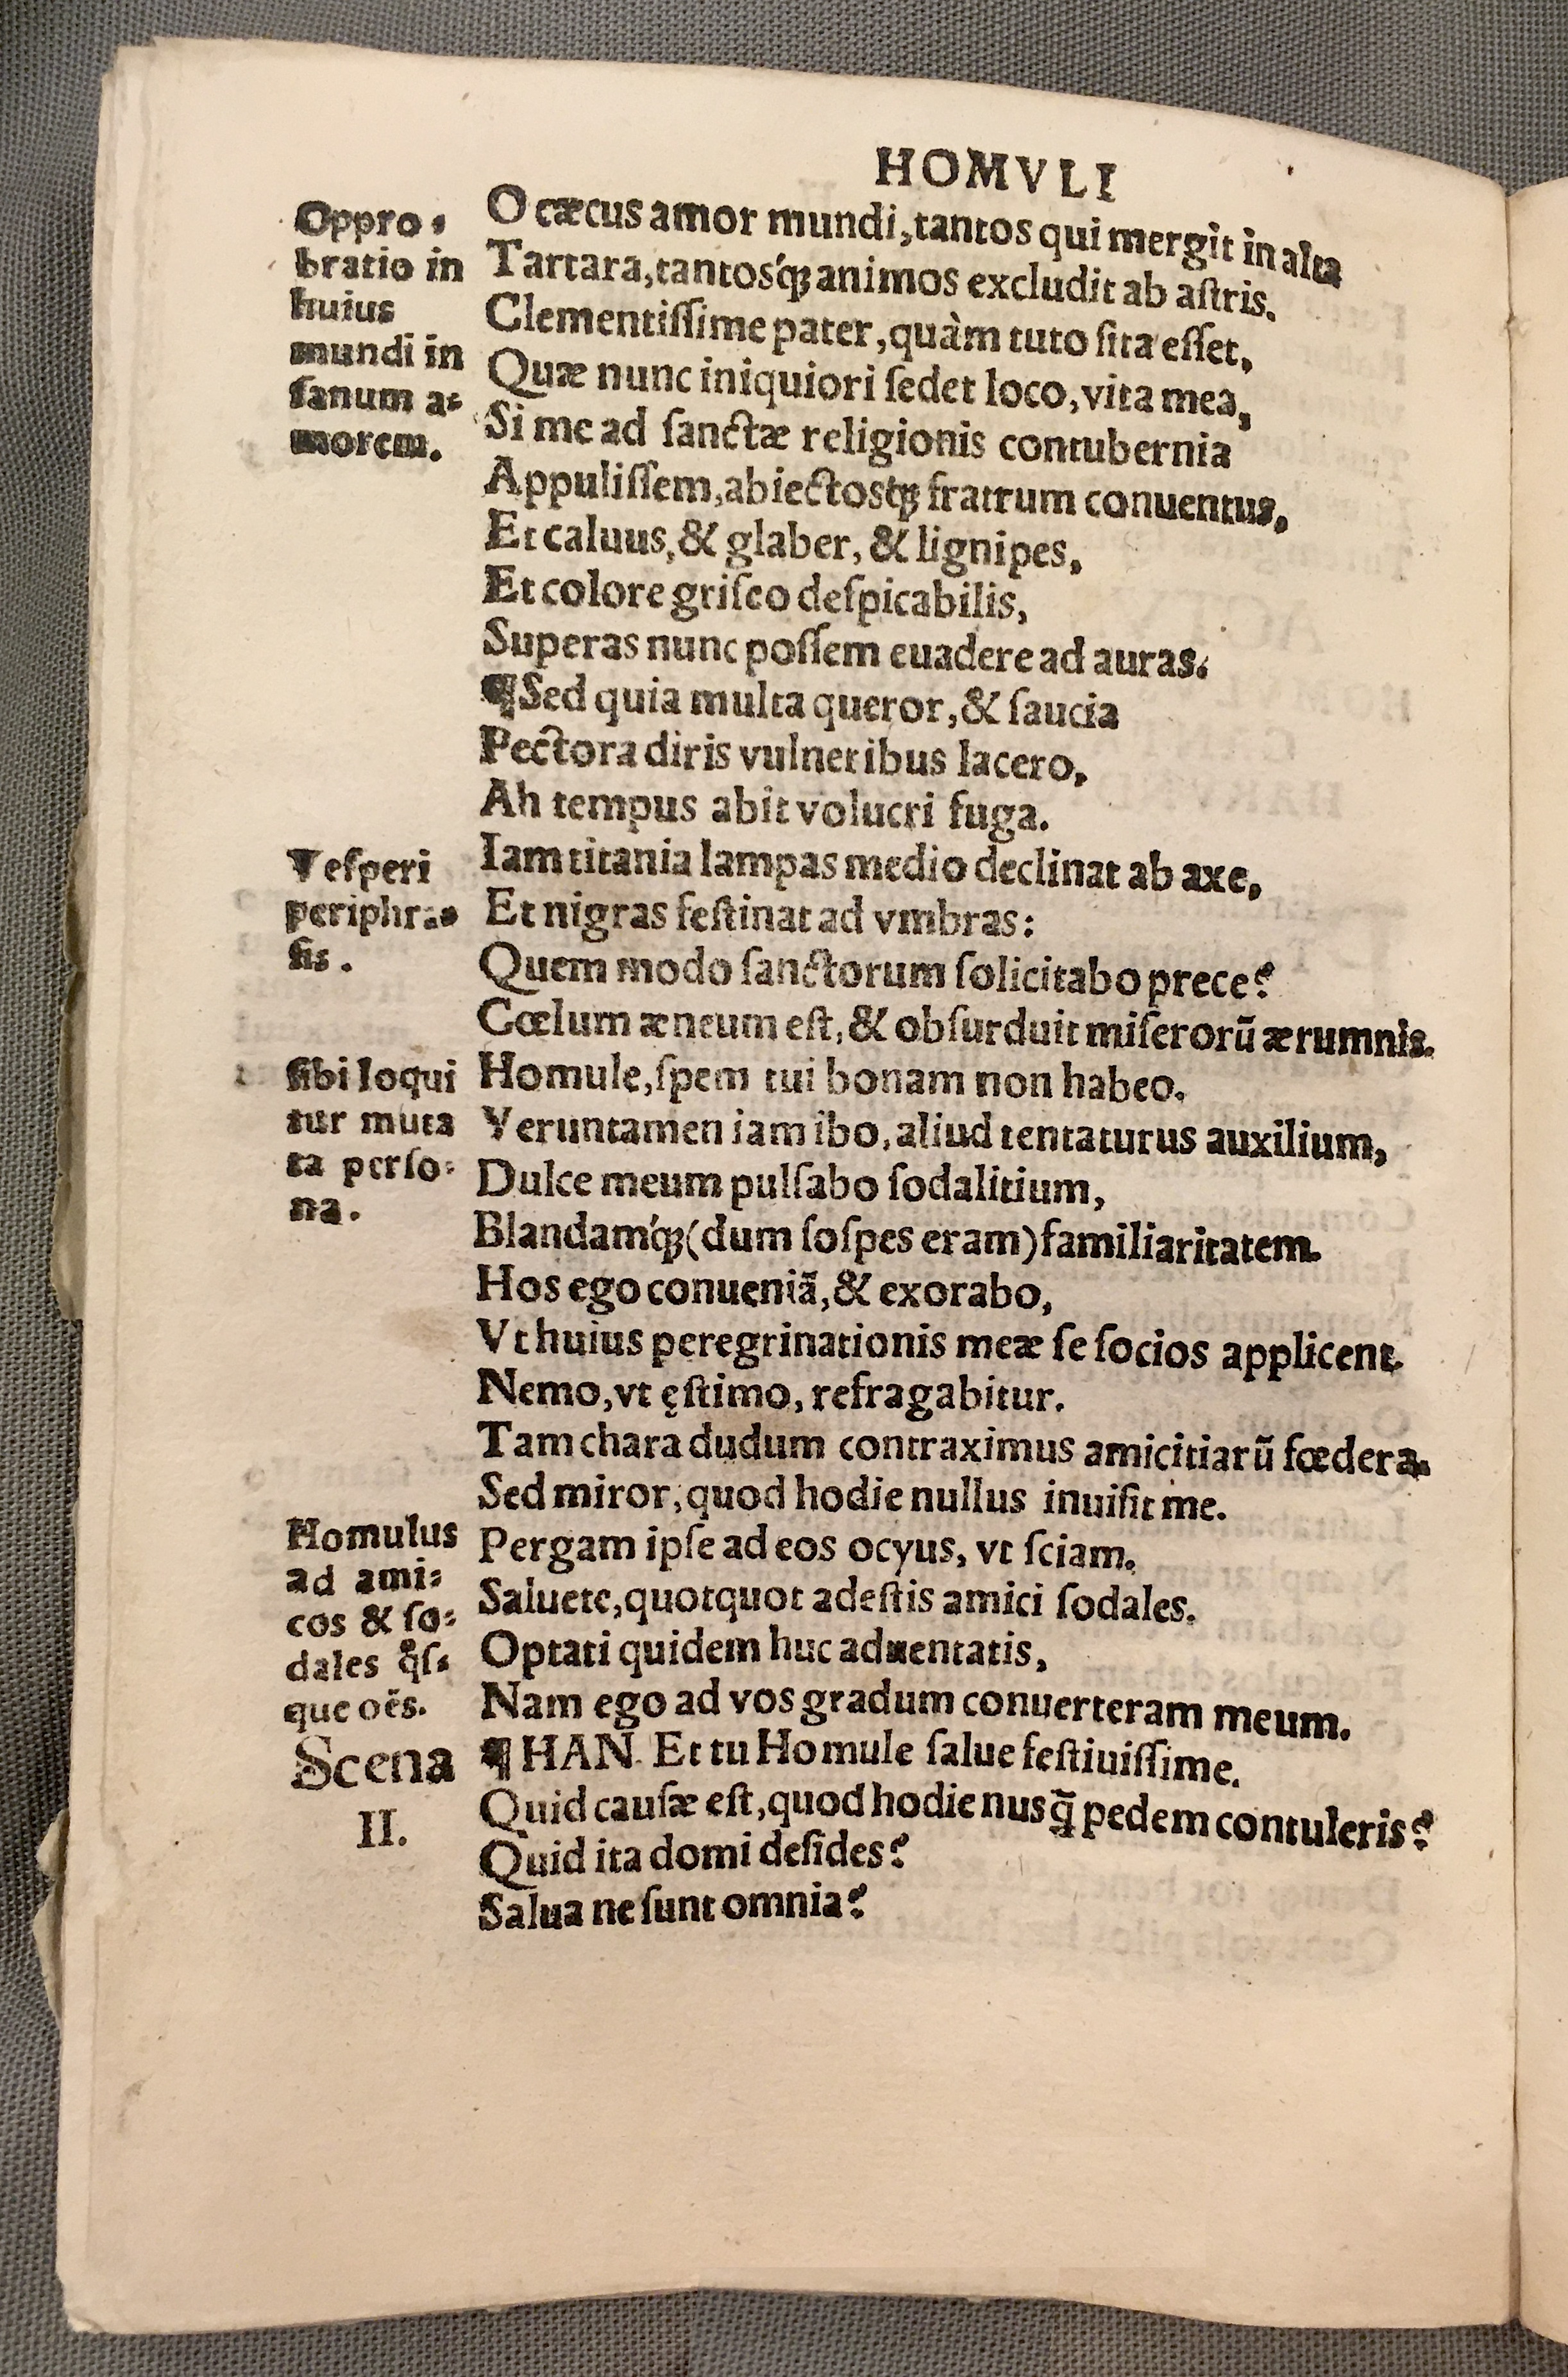 HOMVLI
Oppro-
bratio in
huius
mundi in
ſanum a-
morem.
O cæcus amor mundi, tantos qui mergit in alta
Tartara, tantosq́ꝫ animos excludit ab aſtris.
Clementiſſime pater, quàm tuto ſita eſſet,
Quæ nunc iniquiori ſedet loco, vita mea,
Si me ad ſanctæ religionis contubernia
Appuliſſem, abiectosqꝫ fratrum conuentus,
Et caluus, & glaber, & lignipes,
Et colore griſeo deſpicabilis,
Superas nunc poſſem euadere ad auras.
¶ Sed quia multa queror, & ſaucia
Pectora diris vulneribus lacero,
Ah tempus abit volucri fuga.
Veſperi
periphra-
ſis.
Iam titania lampas medio declinat ab axe,
Et nigras feſtinat ad vmbras:
Quem modo ſanctorum ſolicitabo prece?
Cœlum æneum eſt, & obſurduit miſerorū ærumnis.
ſibi loqui
tur muta
ta perſo-
na.
Homule, ſpem tui bonam non habeo.
Veruntamen iam ibo, aliud tentaturus auxilium,
Dulce meum pulſabo ſodalitium,
Blandamq́ꝫ (dum ſoſpes eram) familiaritatem.
Hos ego conueniã, & exorabo,
Vt huius peregrinationis meæ ſe ſocios applicent.
Nemo, vt ęſtimo, refragabitur.
Tam chara dudum contraximus amicitiarū fœdera.
Sed miror, quod hodie nullus inuiſit me.
Homulus
ad ami-
cos & ſo-
dales q̊ſ-
que oēs.
Pergam ipſe ad eos ocyus, vt ſciam.
Saluete, quotquot adeſtis amici ſodales.
Optati quidem huc aduentatis,
Nam ego ad vos gradum conuerteram meum.
Scena
II.
¶ HAN. Et tu Homule ſalue feſtiuiſſime.
Quid cauſæ eſt, quod hodie nusq̄̃ pedem contuleris?
Quid ita domi deſides?
Salua ne ſunt omnia?